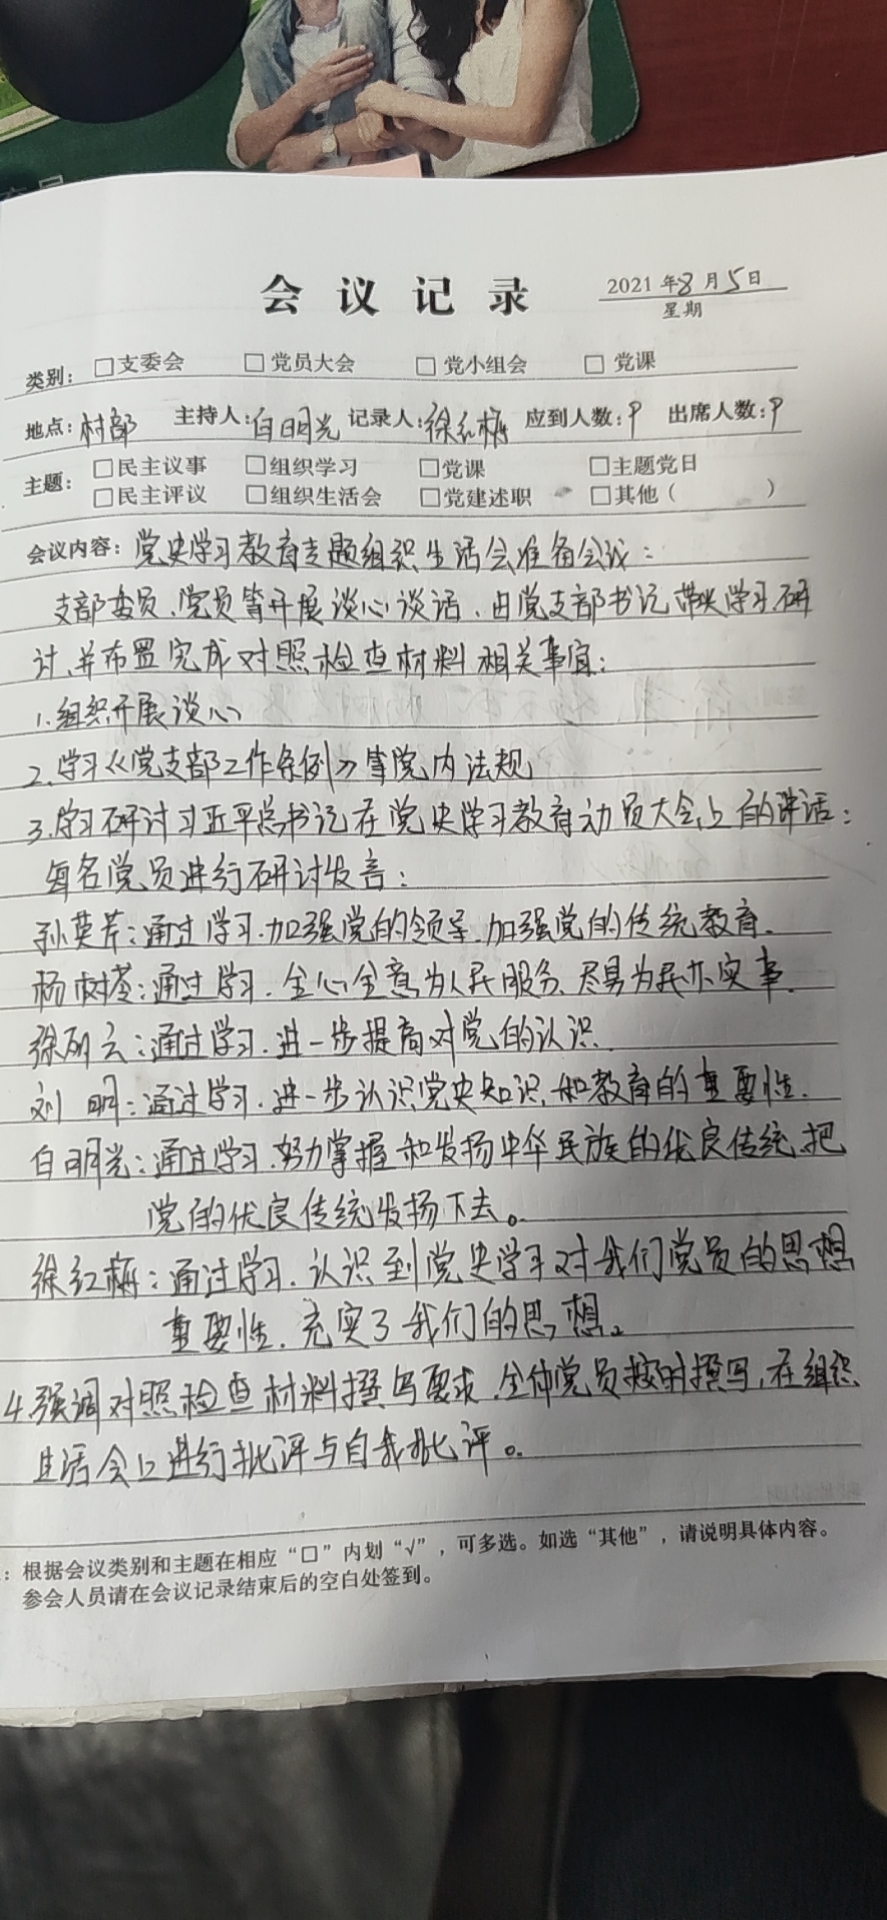 会议记录
2021年8月5日
星期
类别: □支委会 □党员大会 □党小组会 □党课
地点:村部 主持人:白明光 记录人:徐红梅 应到人数:9 出席人数:9
主题: □民主议事 □组织学习 □党课 □主题党日
□民主评议 □组织生活会 □党建述职 □其他( )
会议内容:党史学习教育专题组织生活会准备会议:
支部委员、党员皆开展谈心谈话、由党支部书记带头学习研
讨、并布置完成对照检查材料相关事宜:
1.组织开展谈心
2.学习《党支部工作条例》等党内法规
3.学习研讨习近平总书记在党史学习教育动员大会上的讲话:
每名党员进行研讨发言:
孙英芹:通过学习.加强党的领导.加强党的传统教育.
杨树苓:通过学习.全心全意为人民服务、尽易为民办实事.
徐丽云:通过学习.进一步提高对党的认识.
刘明:通过学习.进一步认识党史知识,和教育的重要性.
白明光:通过学习.努力掌握和发扬中华民族的优良传统.把
党的优良传统发扬下去。
徐红梅:通过学习.认识到党史学习对我们党员的思想
重要性.充实了我们的思想。
4.强调对照检查材料撰写要求.全体党员按时撰写,在组织
生活会上进行批评与自我批评。
:根据会议类别和主题在相应“□”内划“√”,可多选。如选“其他”,请说明具体内容。
参会人员请在会议记录结束后的空白处签到。